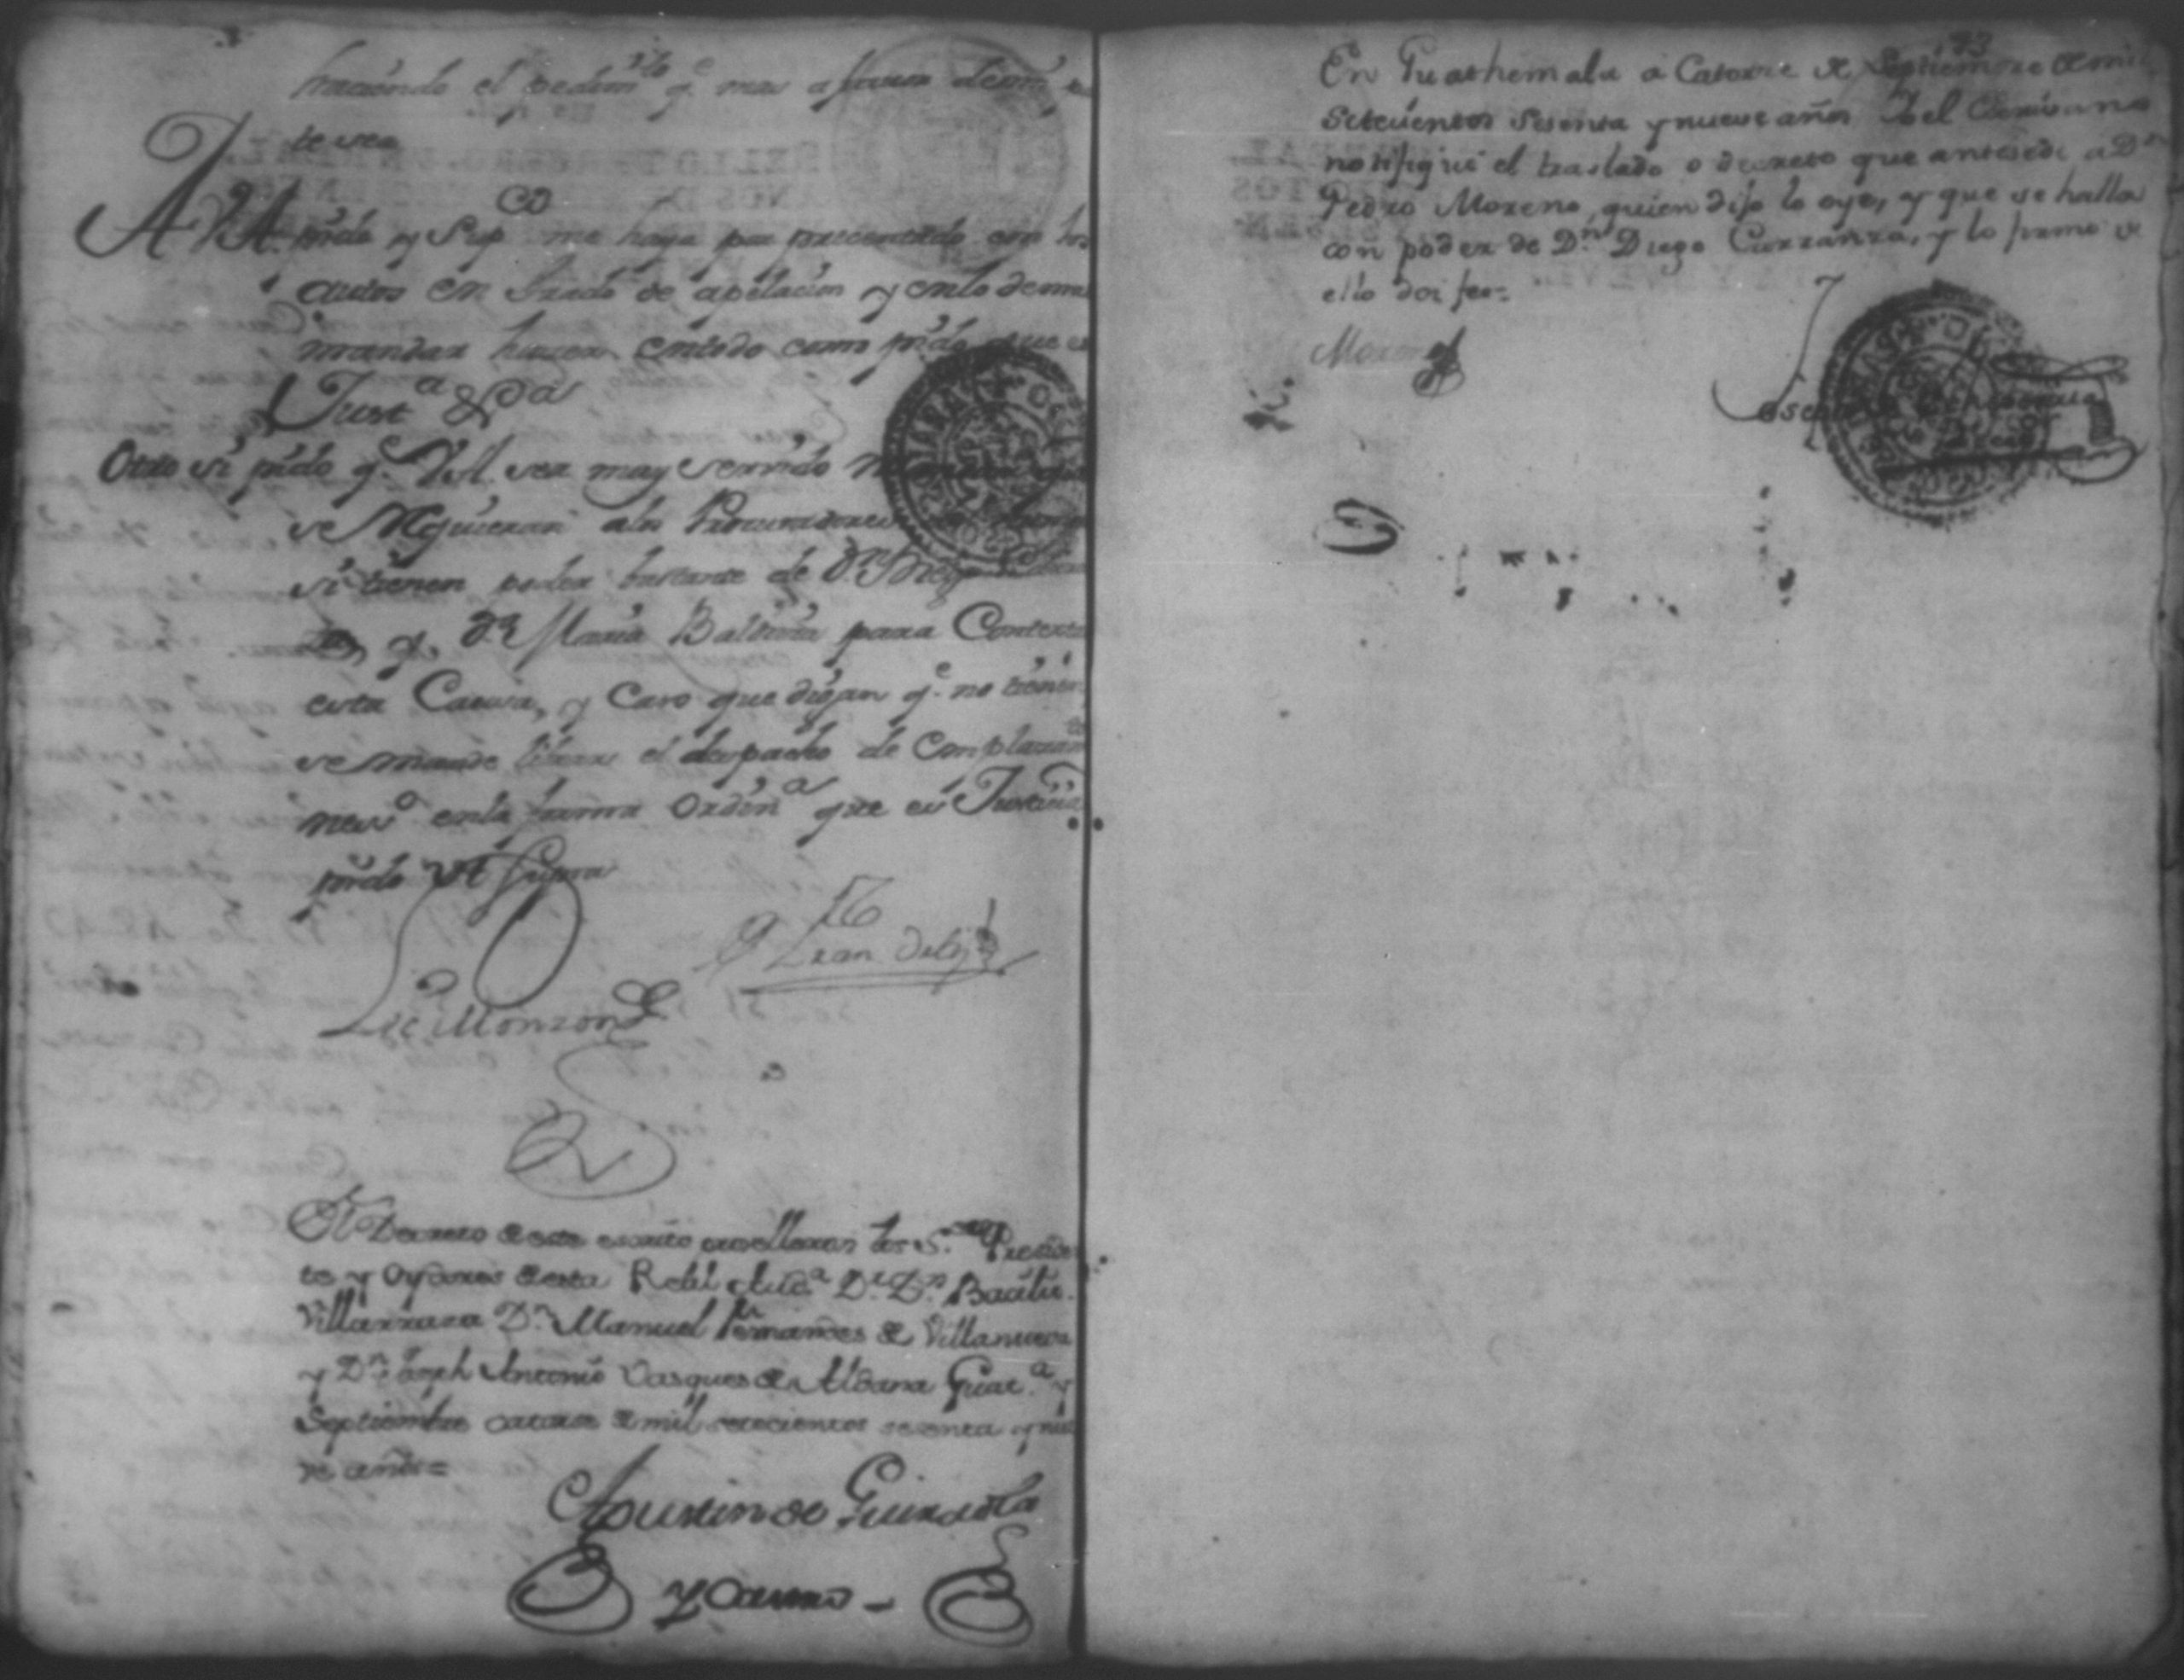 haciendo el pedim.to q.e mas a favor de mi p.te
te vea
A V.A. pido y Sup.co me haya por presentado con los
autos en grado de apelacion y en lo demas
mandar hacer en todo como pido que es
Just.a &.a
Otro si pido q.e V.A. sea muy servido
se requieran a los Procuradores
si tienen poder bastante de D.n Diego
y D.a Maria Balbina para Contextar
esta Causa, y Caso que digan q.e no tienen
se mande librar el despacho de emplazam.to
neces.o en la forma Ordin.a que es Justicia
pido Ut Supra
Lic. Monzon
El Decreto de este escrito proveyeron los S.res Preside
te y Oydores de esta Real Aud.a D.r D.n Bacilio
Villarraza D.n Manuel Fernandes de Villanueva
y D.n Joseph Antonio Vasques de Aldana Guat.a y
Septiembre catorce de mil setecientos sesenta y nue
ve años=
Agustin de Guiraola
y Castro
193
En Guathemala à Catorze de Septiembre de mil
Setecientos Sesenta y nueve años Yo el Escrivano
notifiqué el traslado o decreto que antesede a D.n
Pedro Moreno, quien dijo lo oye, y que se halla
con poder de D.n Diego Carranza, y lo firmo de
ello doi fee=
Moreno